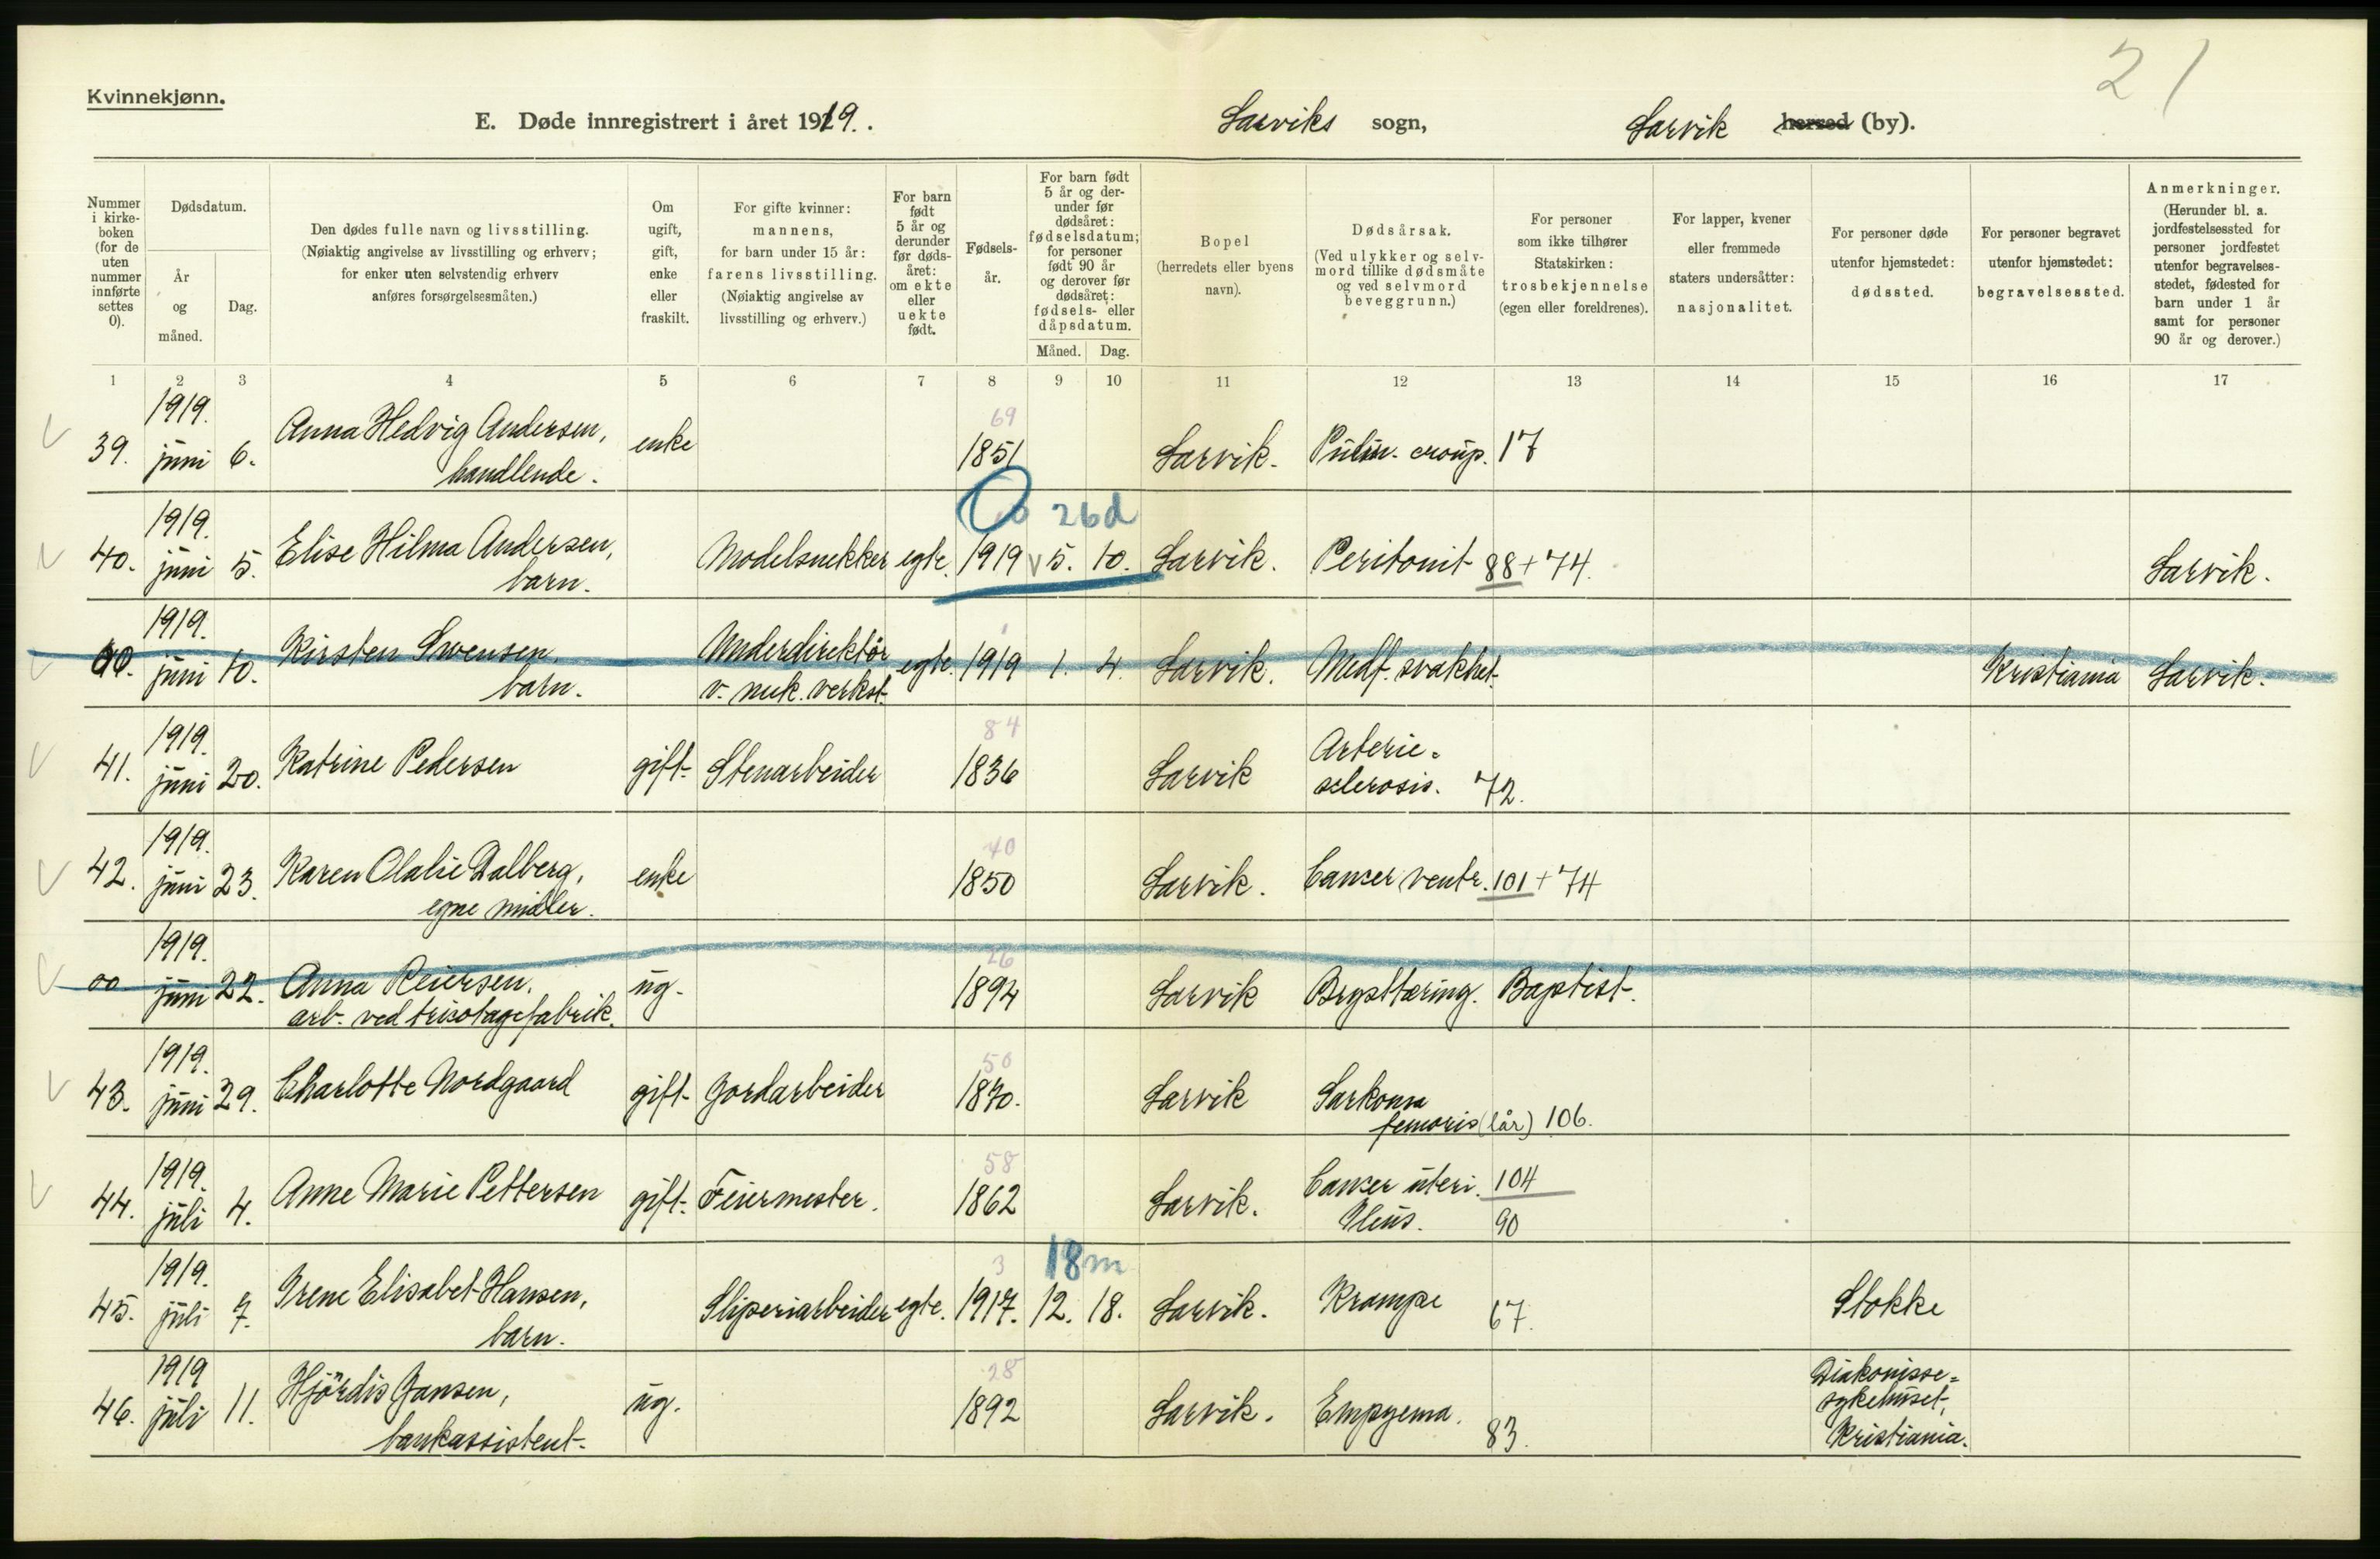 21
Kvinnekjønn.
E. Døde innregistrert i året 1919. Larviks sogn, Larvik herred (by).
Nummer i kirkeboken (for de uten nummer innførte settes 0).
Dødsdatum.
År og måned.
Dag.
Den dødes fulle navn og livsstilling.
(Nøiaktig angivelse av livsstilling og erhverv;
for enker uten selvstendig erhverv
anføres forsørgelsesmåten.)
Om ugift, gift, enke eller fraskilt.
For gifte kvinner:
mannens,
for barn under 15 år:
farens livsstilling.
(Nøiaktig angivelse av
livsstilling og erhverv.)
For barn født 5 år og derunder før dødsåret: om ekte eller uekte født.
Fødselsår.
For barn født 5 år og derunder før dødsåret: fødselsdatum; for personer født 90 år og derover før dødsåret: fødsels- eller dåpsdatum.
Måned. Dag.
Bopel
(herredets eller byens
navn).
Dødsårsak.
(Ved ulykker og selvmord tillike dødsmåte og ved selvmord beveggrunn.)
For personer
som ikke tilhører
Statskirken:
trosbekjennelse
(egen eller foreldrenes).
For lapper, kvener
eller fremmede
staters undersåtter:
nasjonalitet.
For personer døde
utenfor hjemstedet:
dødssted.
For personer begravet
utenfor hjemstedet:
begravelsessted.
Anmerkninger.
(Herunder bl. a.
jordfestelsessted for
personer jordfestet
utenfor begravelses-
stedet, fødested for
barn under 1 år
samt for personer
90 år og derover.)
1 2 3 4 5 6 7 8 9 10 11 12 13 14 15 16 17
39. 1919. juni 6. Anna Hedvig Andersen, handlende. enke 69 1851 Larvik. Pulm. croup. 17
40. 1919. juni 5. Elise Hilma Andersen, barn. Modelsnekker egte. 0 26d 1919 5. 10. Larvik. Peritonit 88+74. Larvik.
00. 1919. juni 10. Kirsten Svensen, barn. Underdirektör v. mek. verkst. egte. 1919 1. 4. Larvik. Medf. svakhet. Kristiania Larvik.
41. 1919. juni 20. Katrine Pedersen gift. Stenarbeider 84 1836 Larvik Arterie-sclerosis. 72.
42. 1919. juni 23. Karen Olalie Dalberg, egne midler. enke 40 1850 Larvik. Cancer ventr. 101+74
00 1919. juni 22. Anna Reiersen, arb. ved tricotagefabrik. ug. 26 1894 Larvik Brysttæring. Baptist.
43. 1919. juni 29. Charlotte Nordgaard gift. Jordarbeider 50 1870. Larvik Sarkoma femoris (lår) 106.
44. 1919. juli 4. Anne Marie Pettersen gift. Feiermester. 58 1862 Larvik. Cancer uteri. 104 Ileus. 90
45. 1919. juli 7. Irene Elisabet Hansen, barn. Sliperiarbeider egte. 3 18m 1917. 12. 18. Larvik. Krampe 67. Stokke
46. 1919 juli 11. Hjördis Jansen, bankassistent. ug. 28 1892 Larvik. Empyema. 83. Diakonisse-sykehuset, Kristiania.